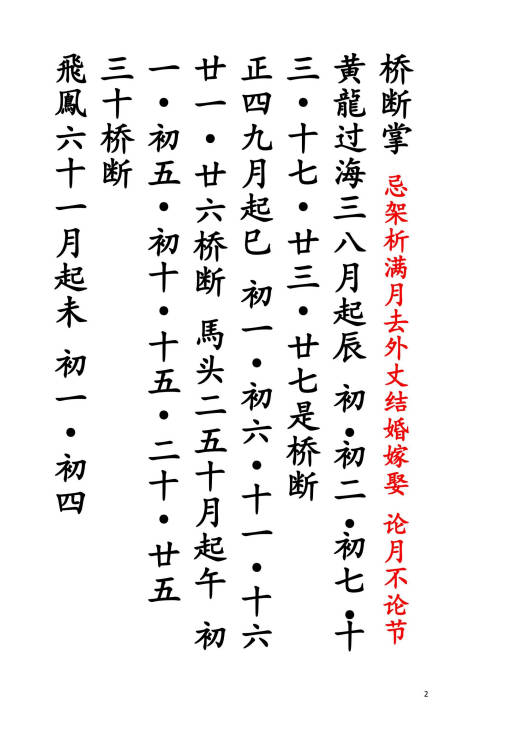 桥断掌 忌架析满月去外丈结婚嫁娶 论月不论节
黄龍过海三八月起辰 初•初二•初七•十
三•十七•廿三•廿七是桥断
正四九月起巳 初一•初六•十一•十六
廿一•廿六桥断 馬头二五十月起午 初
一•初五•初十•十五•二十•廿五
三十桥断
飛鳳六十一月起未 初一•初四
2